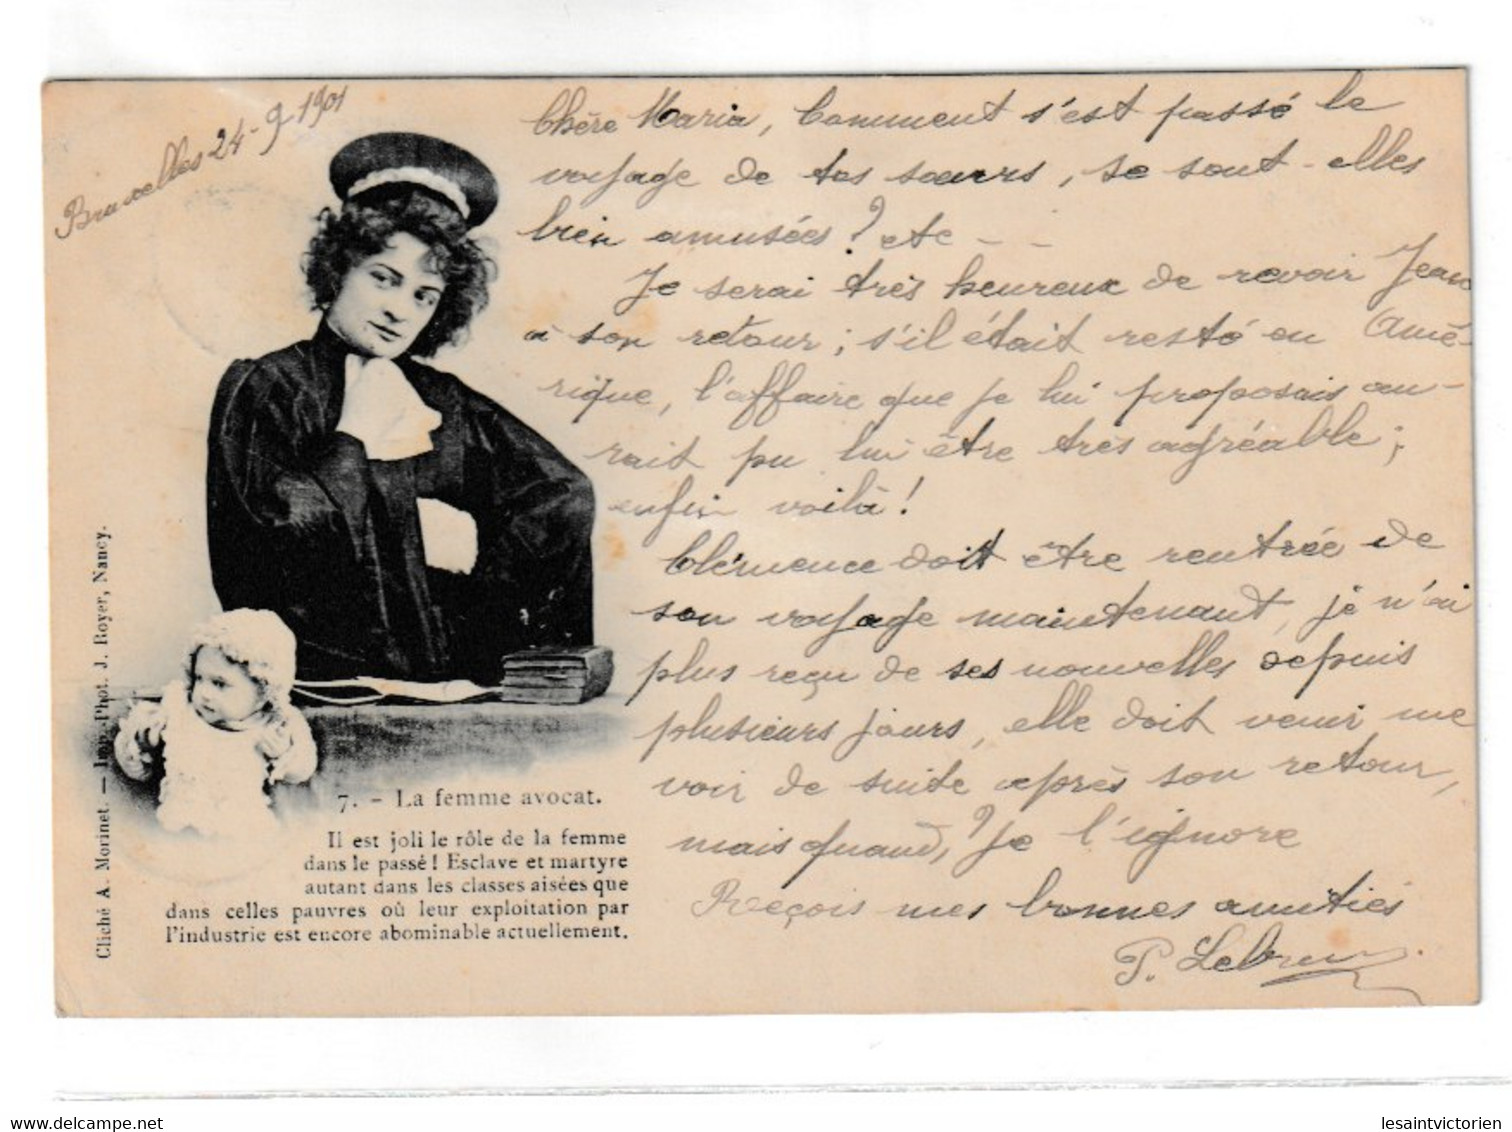 Bruxelles 24-9-1901
Chère Maria, Comment s'est passé le
voyage de tes sœurs, se sont-elles
bien amusées? etc - -
Je serai très heureux de revoir Jean
à son retour; s'il était resté en Amé-
rique, l'affaire que je lui proposais au-
rait pu lui être très agréable;
enfin voilà!
Clémence doit être rentrée de
son voyage maintenant, je n'ai
plus reçu de ses nouvelles depuis
plusieurs jours, elle doit venir me
voir de suite après son retour,
mais quand,? Je l'ignore
Reçois mes bonnes amitiés
P. Lebrun
7. - La femme avocat.
Il est joli le rôle de la femme
dans le passé! Esclave et martyre
autant dans les classes aisées que
dans celles pauvres où leur exploitation par
l'industrie est encore abominable actuellement.
Cliché A. Morinet. — Imp.-Phot. J. Royer, Nancy.
lesaintvictorien